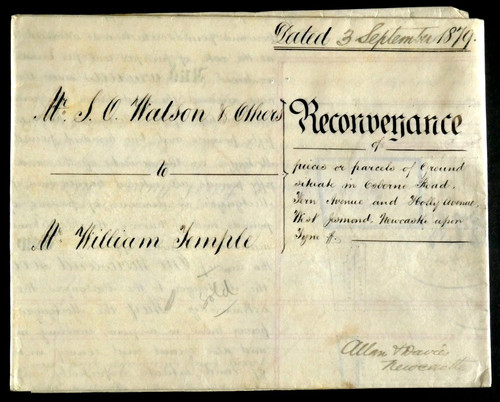 Dated 3 September 1879.
Mr. S. O. Watson & Others
to
Mr William Temple
Reconveyance
of
pieces or parcels of Ground
situate in Osborne Road,
Fern Avenue and Holly Avenue,
West Jesmond, Newcastle upon
Tyne
sold
Allan & Davies
Newcastle